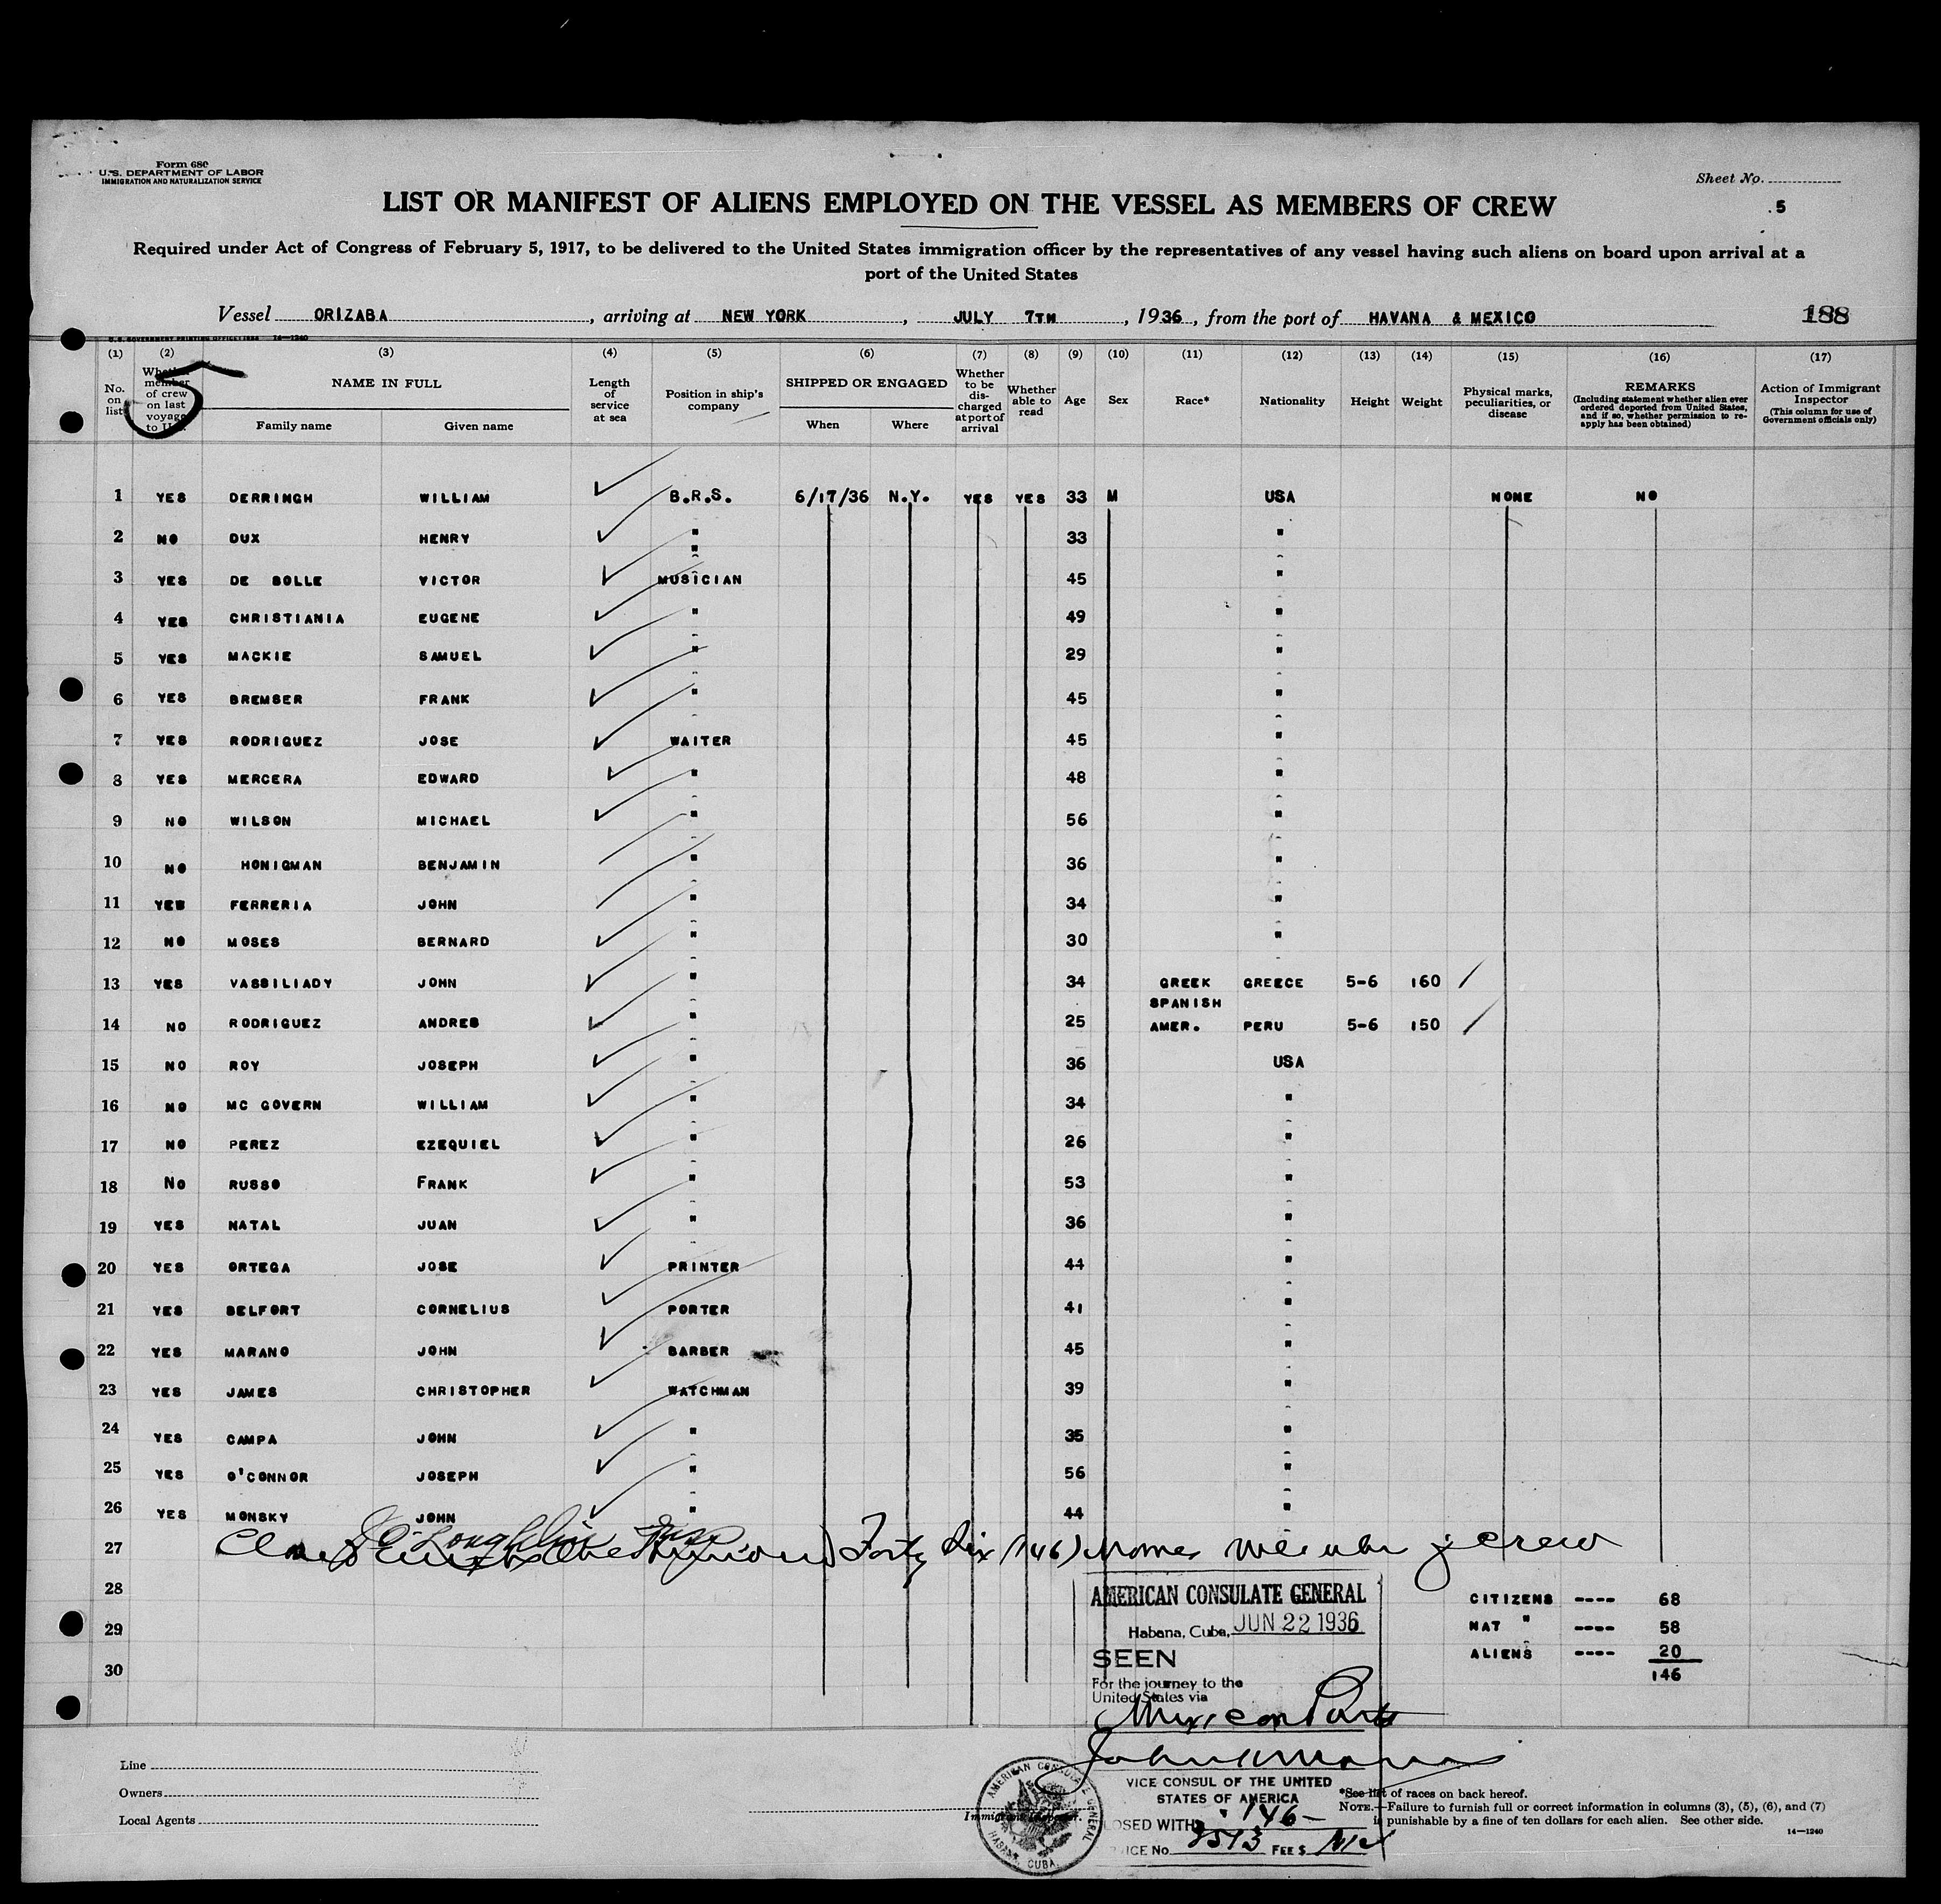 Form 680
U.S. DEPARTMENT OF LABOR
IMMIGRATION AND NATURALIZATION SERVICE
Sheet No.
5
LIST OR MANIFEST OF ALIENS EMPLOYED ON THE VESSEL AS MEMBERS OF CREW
Required under Act of Congress of February 5, 1917, to be delivered to the United States immigration officer by the representatives of any vessel having such aliens on board upon arrival at a
port of the United States
Vessel ORIZABA, arriving at NEW YORK, JULY 7TH, 1936, from the port of HAVANA & MEXICO
188
U.S. GOVERNMENT PRINTING OFFICE 14-1240
(1) (2) (3) (4) (5) (6) (7) (8) (9) (10) (11) (12) (13) (14) (15) (16) (17)
No. on list
Whether member of crew on last voyage to U.S.
5
NAME IN FULL
Family name Given name
Length of service at sea
Position in ship's company
SHIPPED OR ENGAGED
When Where
Whether to be discharged at port of arrival
Whether able to read
Age Sex Race* Nationality Height Weight
Physical marks, peculiarities, or disease
REMARKS
(Including statement whether alien ever ordered deported from United States, and if so, whether permission to re-apply has been obtained)
Action of Immigrant Inspector
(This column for use of Government officials only)
1 YES DERRINGH WILLIAM B.R.S. 6/17/36 N.Y. YES YES 33 M USA NONE NO
2 NO DUX HENRY " 33 "
3 YES DE BOLLE VICTOR MUSICIAN 45 "
4 YES CHRISTIANIA EUGENE " 49 "
5 YES MACKIE SAMUEL " 29 "
6 YES BREMSER FRANK " 45 "
7 YES RODRIGUEZ JOSE WAITER 45 "
8 YES MERCERA EDWARD " 48 "
9 NO WILSON MICHAEL " 56 "
10 NO HONIGMAN BENJAMIN " 36 "
11 YES FERRERIA JOHN " 34 "
12 NO MOSES BERNARD " 30 "
13 YES VASSILIADY JOHN " 34 GREEK GREECE 5-6 160
14 NO RODRIGUEZ ANDRES " 25 SPANISH AMER. PERU 5-6 150
15 NO ROY JOSEPH " 36 USA
16 NO MC GOVERN WILLIAM " 34 "
17 NO PEREZ EZEQUIEL " 26 "
18 NO RUSSO FRANK " 53 "
19 YES NATAL JUAN " 36 "
20 YES ORTEGA JOSE PRINTER 44 "
21 YES BELFORT CORNELIUS PORTER 41 "
22 YES MARANO JOHN BARBER 45 "
23 YES JAMES CHRISTOPHER WATCHMAN 39 "
24 YES CAMPA JOHN " 35 "
25 YES O'CONNOR JOSEPH " 56 "
26 YES MONSKY JOHN " 44 "
27 Forty Six (146) crew
28
29
30
AMERICAN CONSULATE GENERAL
Habana, Cuba, JUN 22 1936
SEEN
For the journey to the
United States via
Mexican Ports
CITIZENS ---- 68
NAT " ---- 58
ALIENS ---- 20
146
VICE CONSUL OF THE UNITED
STATES OF AMERICA
146
No. 2513 FEE $
AMERICAN CONSULATE GENERAL HABANA, CUBA
Line
Owners
Local Agents
*See list of races on back hereof.
NOTE.—Failure to furnish full or correct information in columns (3), (5), (6), and (7)
is punishable by a fine of ten dollars for each alien. See other side.
14-1240